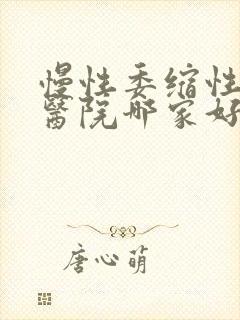 慢性委缩性
醫院哪家好
唐心萌